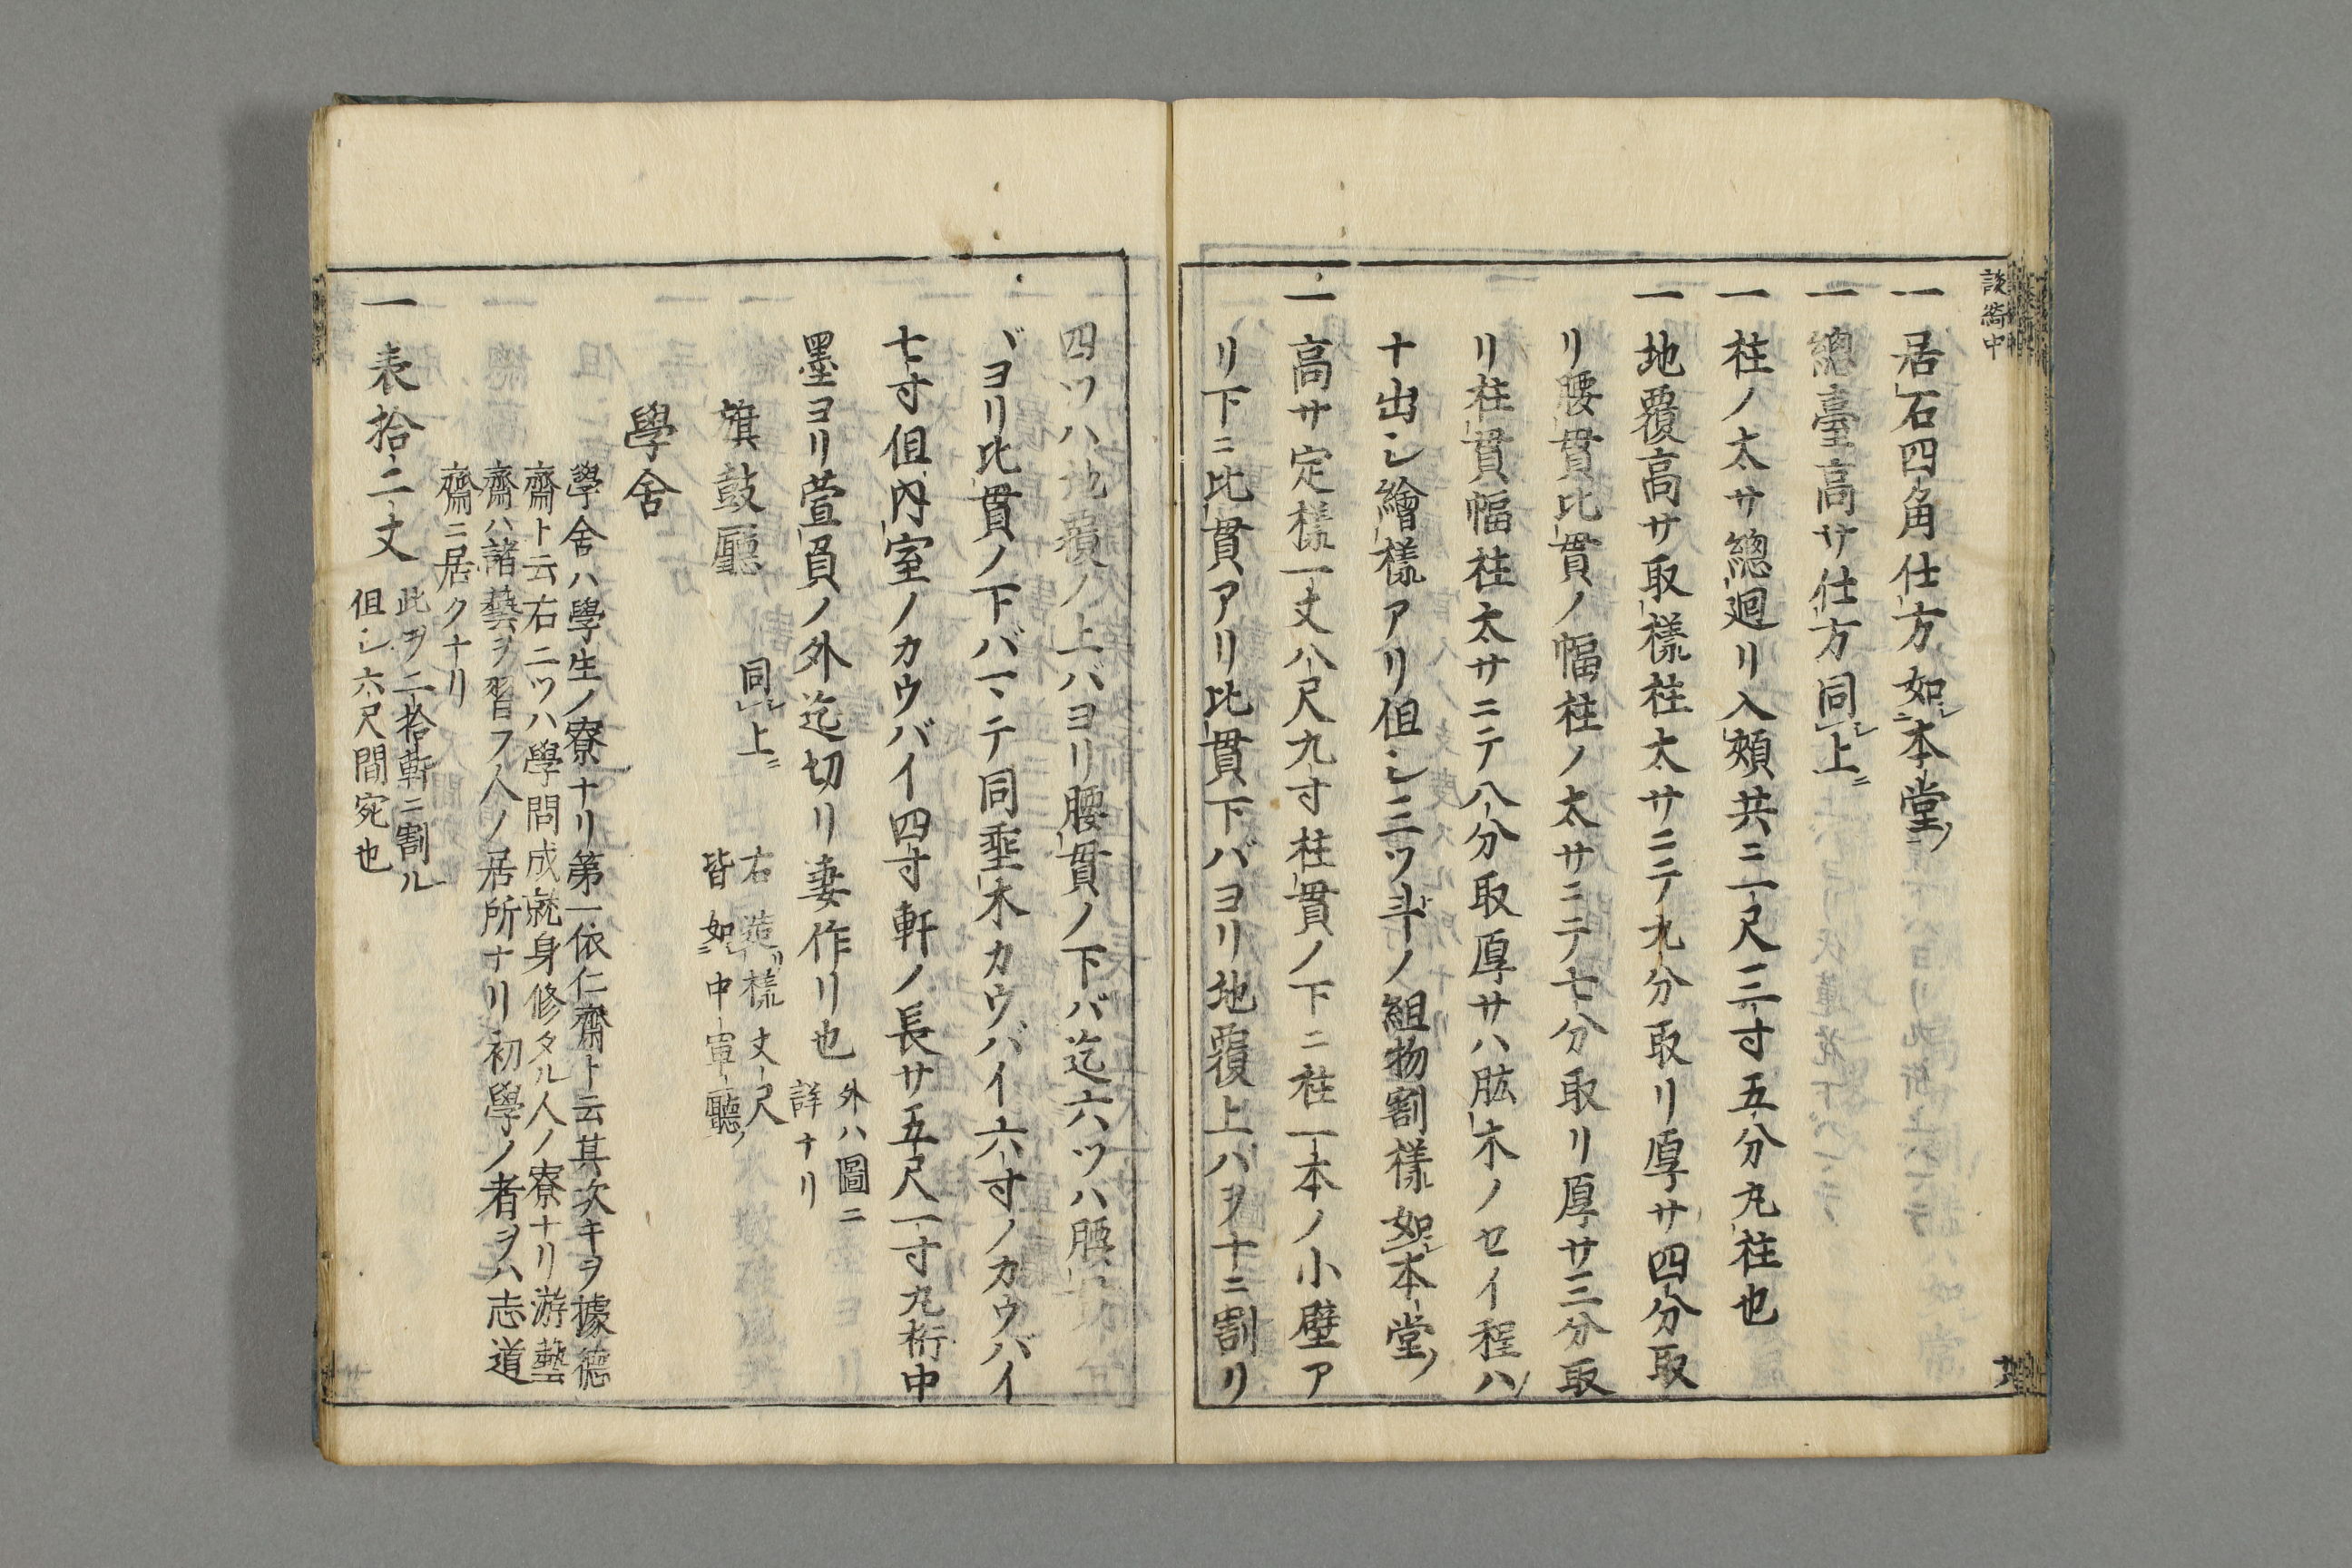 談綺中
一居石四角仕方如本堂ノ
一總臺高サ仕方同上ニ
一柱ノ太サ總廻リ入頬共ニ二尺三寸五分丸柱也
一地覆高サ取樣柱太サニテ九分取リ厚サ四分取
リ腰貫比貫ノ幅柱ノ太サニテ七分取リ厚サ三分取
リ柱貫幅柱太サニテ八分取厚サハ肱木ノセイ程ハ
十出シ繪樣アリ但シ三ツ斗ノ組物割樣如本堂ノ
一高サ定樣一丈八尺九寸柱貫ノ下ニ柱一本ノ小壁ア
リ下ニ比貫アリ比貫下バヨリ地覆上バヲ十ニ割リ
四ツハ地覆ノ上バヨリ腰貫ノ下バ迄六ツハ腰
バヨリ比貫ノ下バマテ同埀木カウバイ六寸ノカウバイ
七寸但内室ノカウバイ四寸軒ノ長サ五尺一寸九桁中
墨ヨリ萱負ノ外迄切リ妻作リ也
外ハ圖ニ
詳ナリ
旗鼓廳
同上ニ
右造リ樣丈尺
皆如中軍廳ノ
學舍
學舍ハ學生ノ寮ナリ第一依仁齋ト云其次キヲ據德
齋ト云右二ツハ學問成就身修タル人ノ寮ナリ游藝
齋ハ諸藝ヲ習フ人ノ居所ナリ初學ノ者ヲハ志道
齋ニ居クナリ
一表拾二丈
此ヲ二拾軒ニ割ル
但シ六尺間宛也